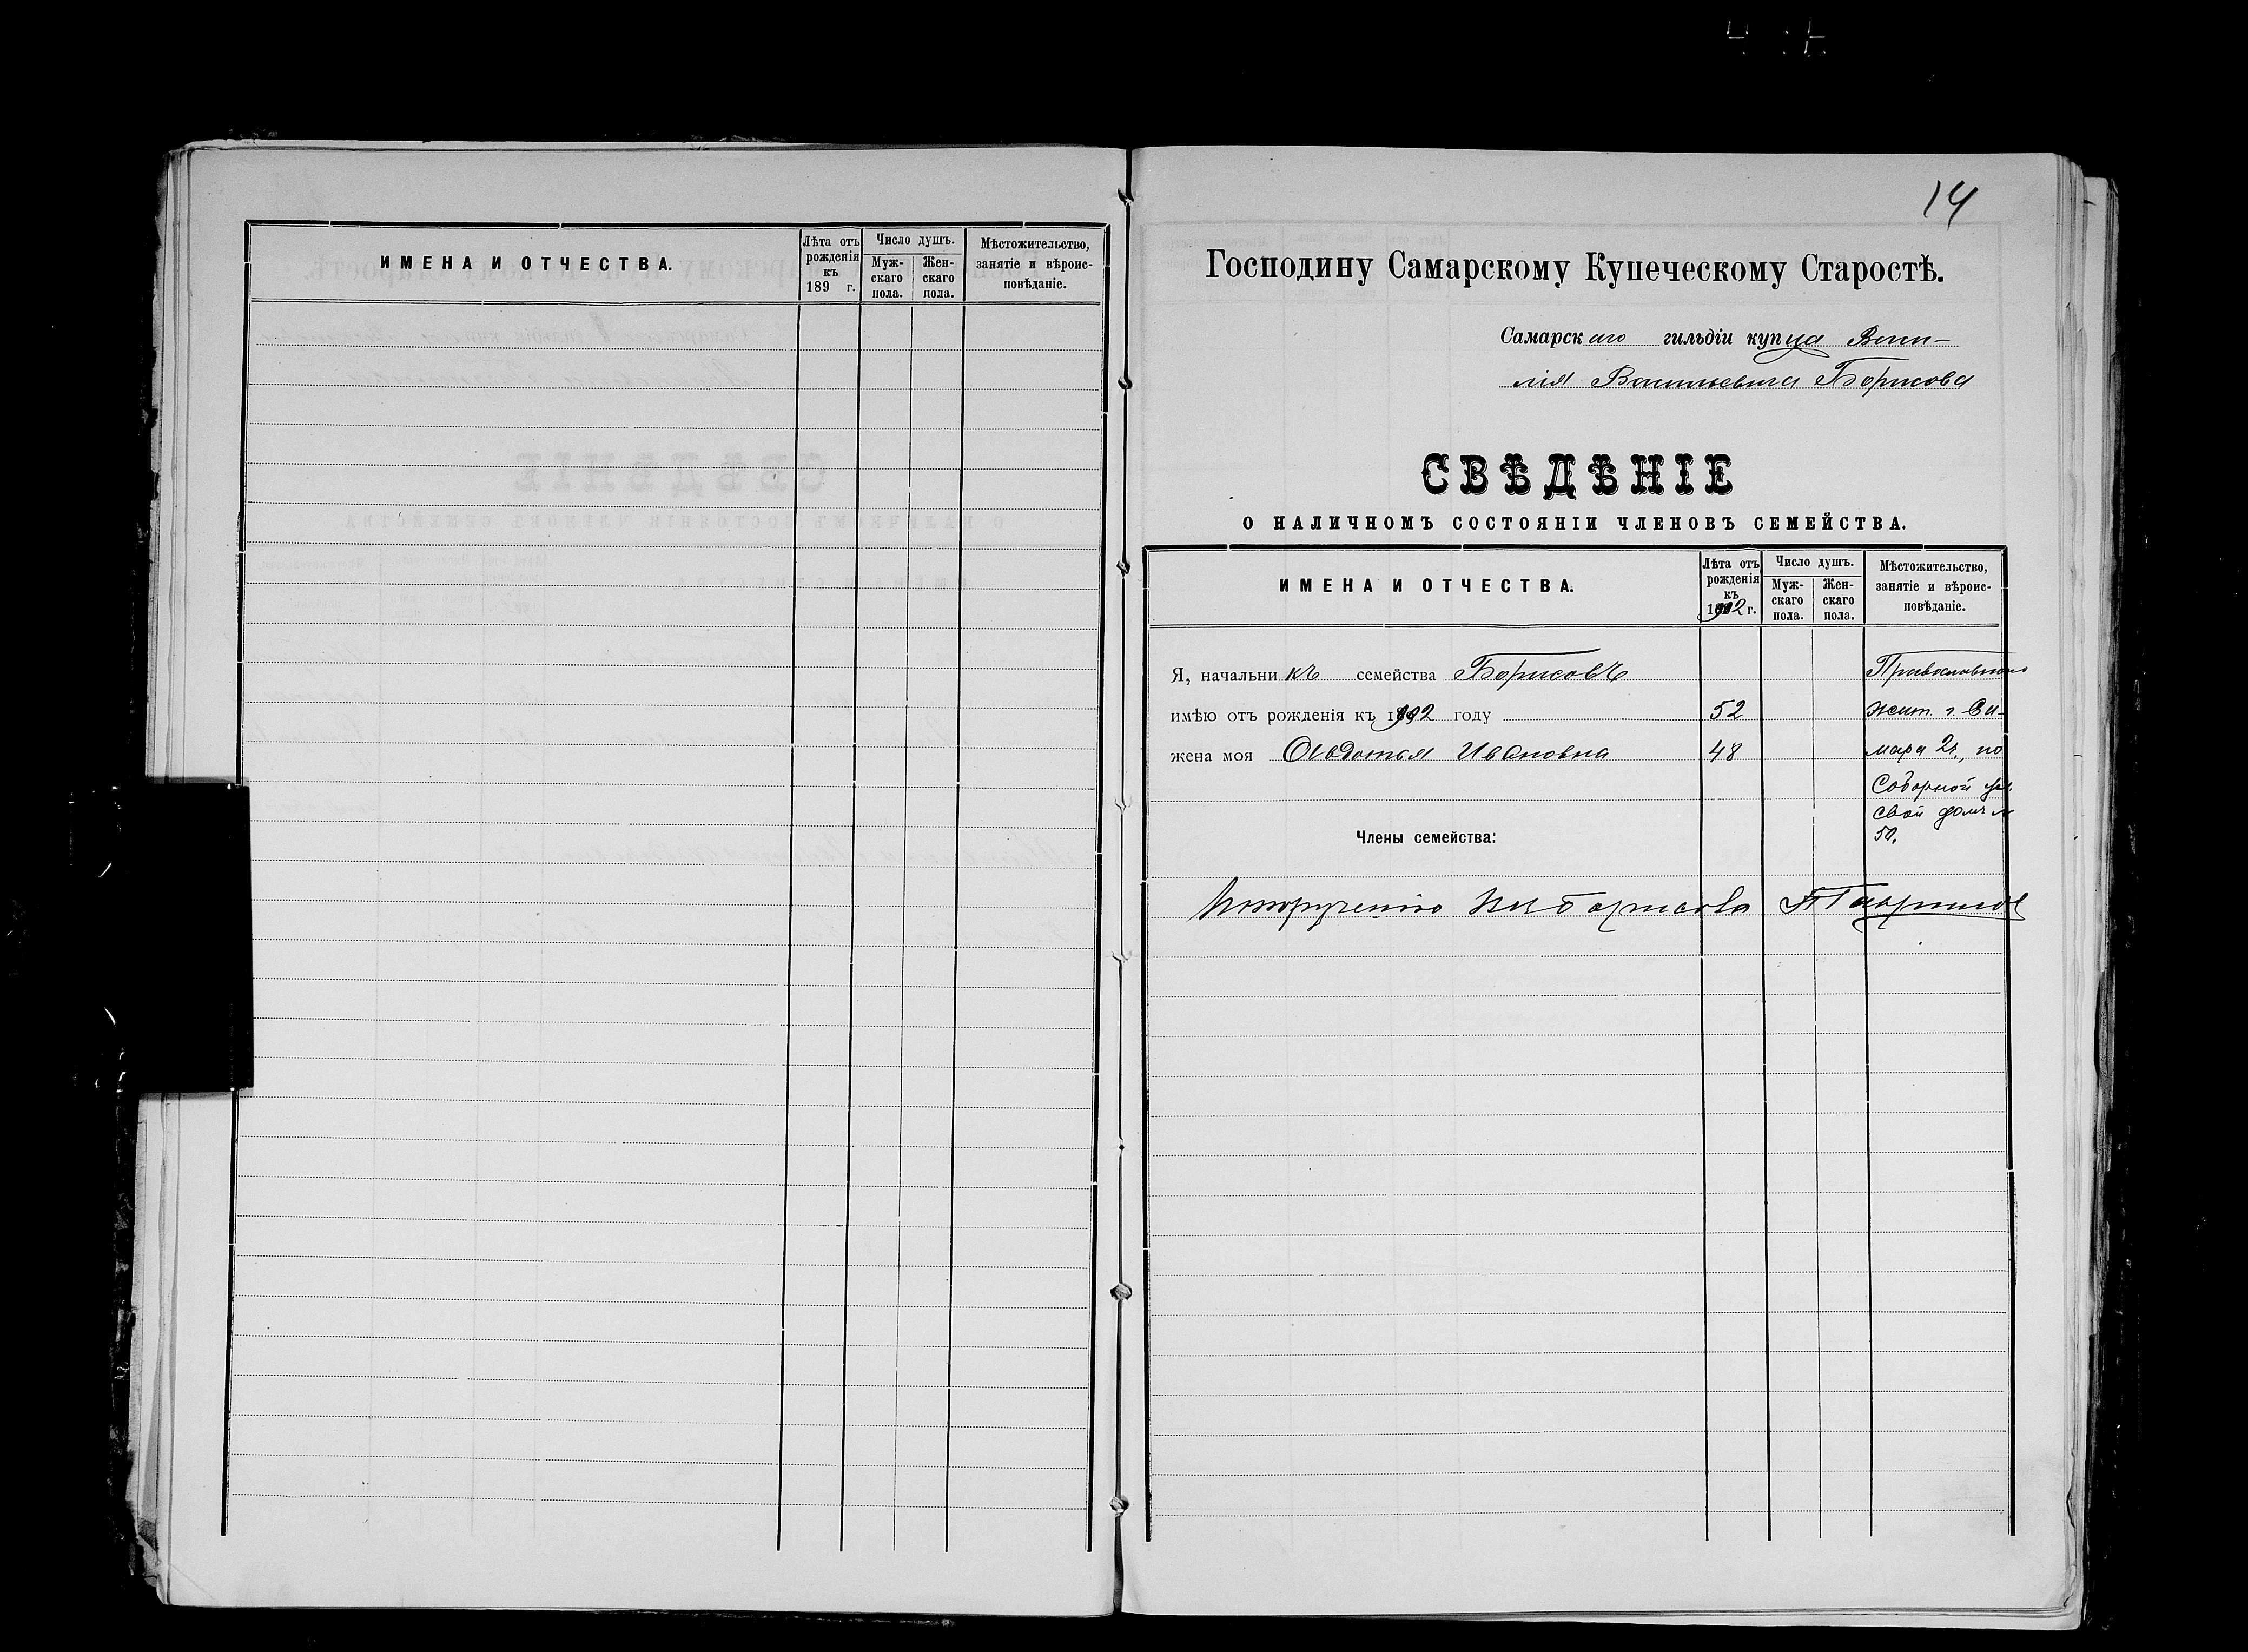 ИМЕНА И ОТЧЕСТВА.
Лѣта отъ рожденія къ 189 г.
Число душъ.
Муж-скаго пола.
Жен-скаго пола.
Мѣстожительство, занятіе и вѣроис-повѣданіе.
14
Господину Самарскому Купеческому Старостѣ.
Самарскаго гильдіи купца Васи-
лія Васильевича Борисова
СВѢДѢНІЕ
О НАЛИЧНОМЪ СОСТОЯНІИ ЧЛЕНОВЪ СЕМЕЙСТВА.
ИМЕНА И ОТЧЕСТВА.
Лѣта отъ рожденія къ 1902 г.
Число душъ.
Муж-скаго пола.
Жен-скаго пола.
Мѣстожительство, занятіе и вѣроис-повѣданіе.
Я, начальникъ семейства Борисовъ
Православнаго
имѣю отъ рожденія къ 1902 году 52
жит. г. Са-
жена моя Авдотья Ивановна 48
мара 2ч., по
Соборной ул.
свой домъ №
50.
Члены семейства:
По порученію Борисова Гаврилов